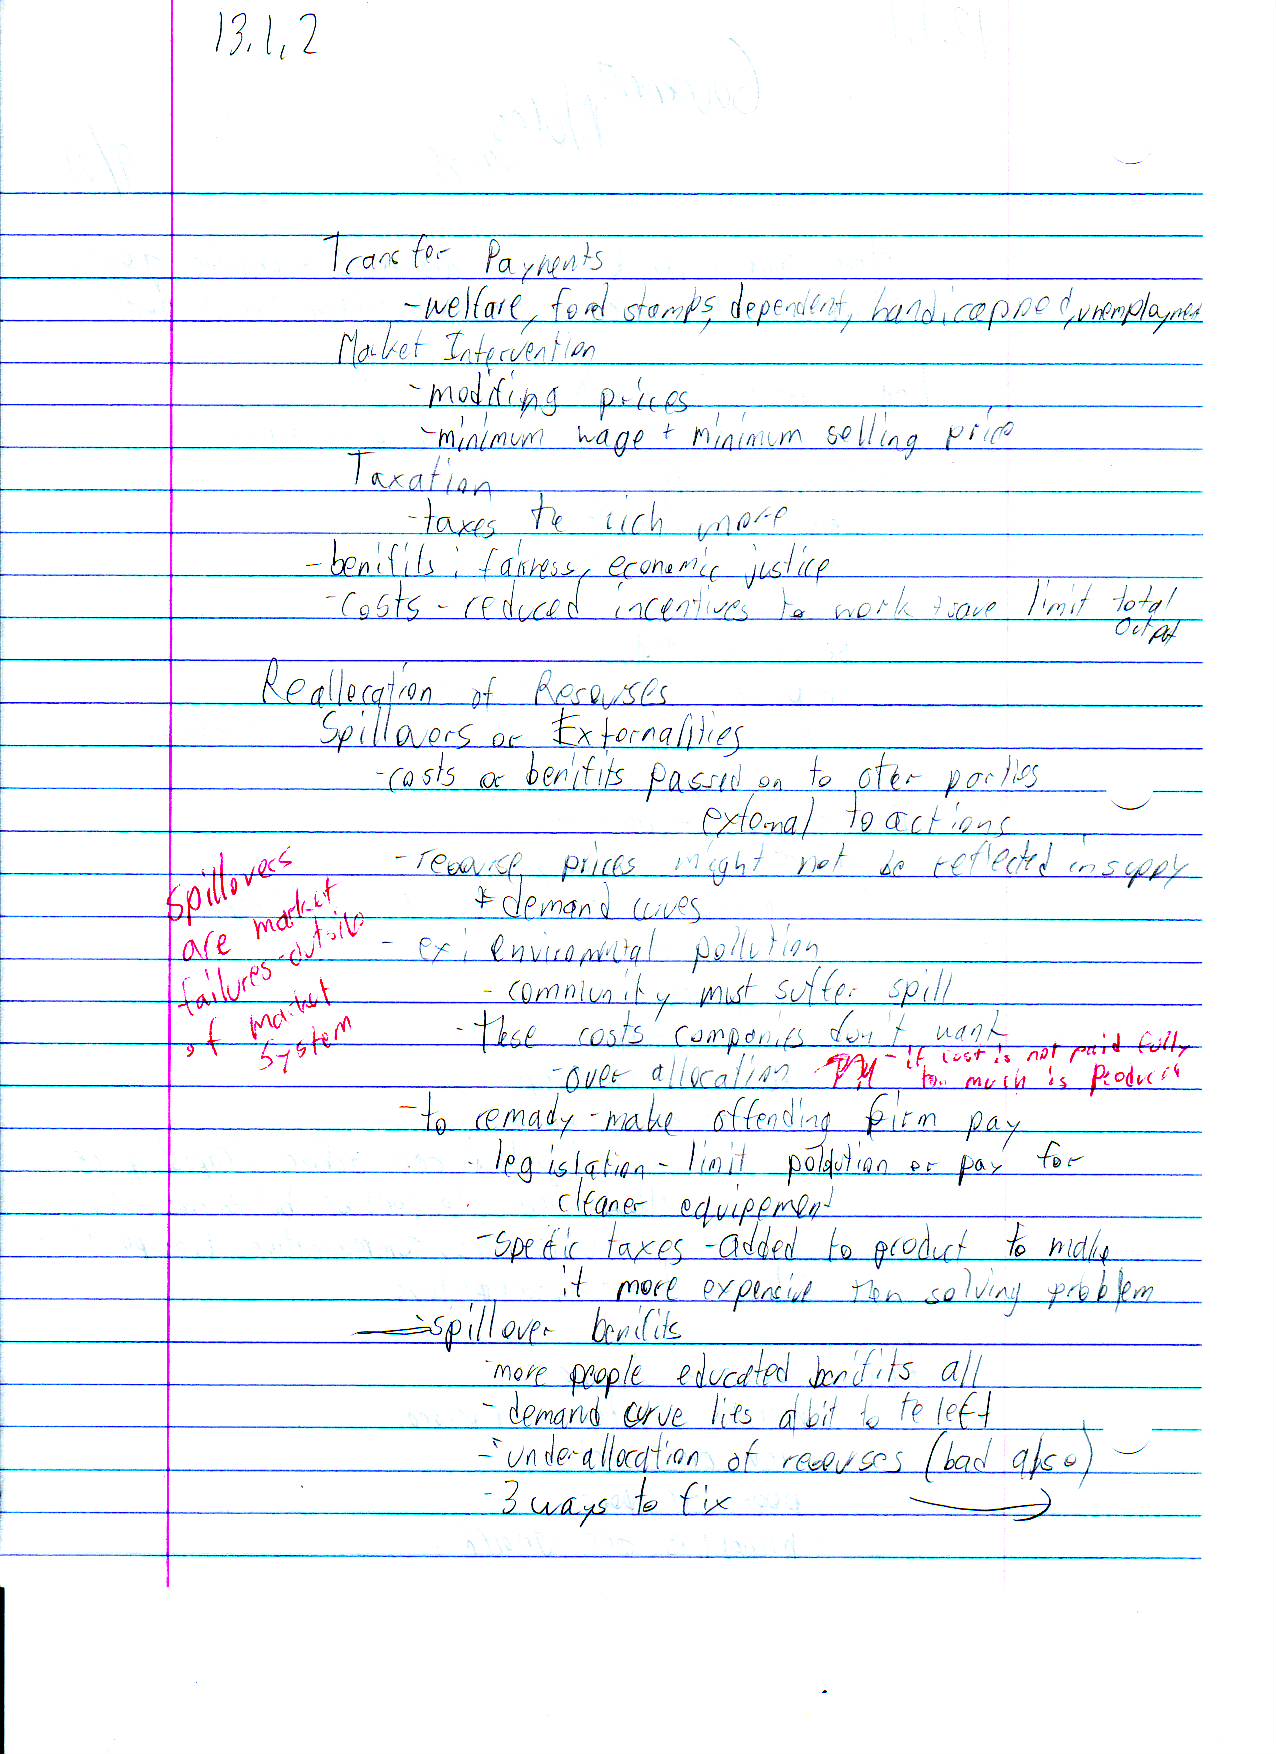 13.1,2
Transfer Payments
-welfare, food stamps, dependent, handicapped, unemployment
Market Intervention
-modifing prices
-minimum wage + minimum selling price
Taxation
-taxes the rich more
-benifits: fairness, economic justice
-costs - reduced incentives to work + save limit total
output
Reallocation of Resourses
Spillovers or Externalities
-costs or benifits passed on to oter parties
external to actions
-resourse prices might not be reflected in supply
& demand curves
- ex: enviromental pollution
- community must suffer spill
-these costs companies don't want
-over allocation - if cost is not paid fully
too much is produced
spillovers
are market
failures-outside
of market
system
-to remady - make offending firm pay
-legislation - limit polution or pay for
cleaner equipement
-specfic taxes - added to product to make
it more expensive then solving problem
spillover benifits
-more people educated benifits all
-demand curve lies a bit to te left
-underallocation of resourses (bad also)
-3 ways to fix